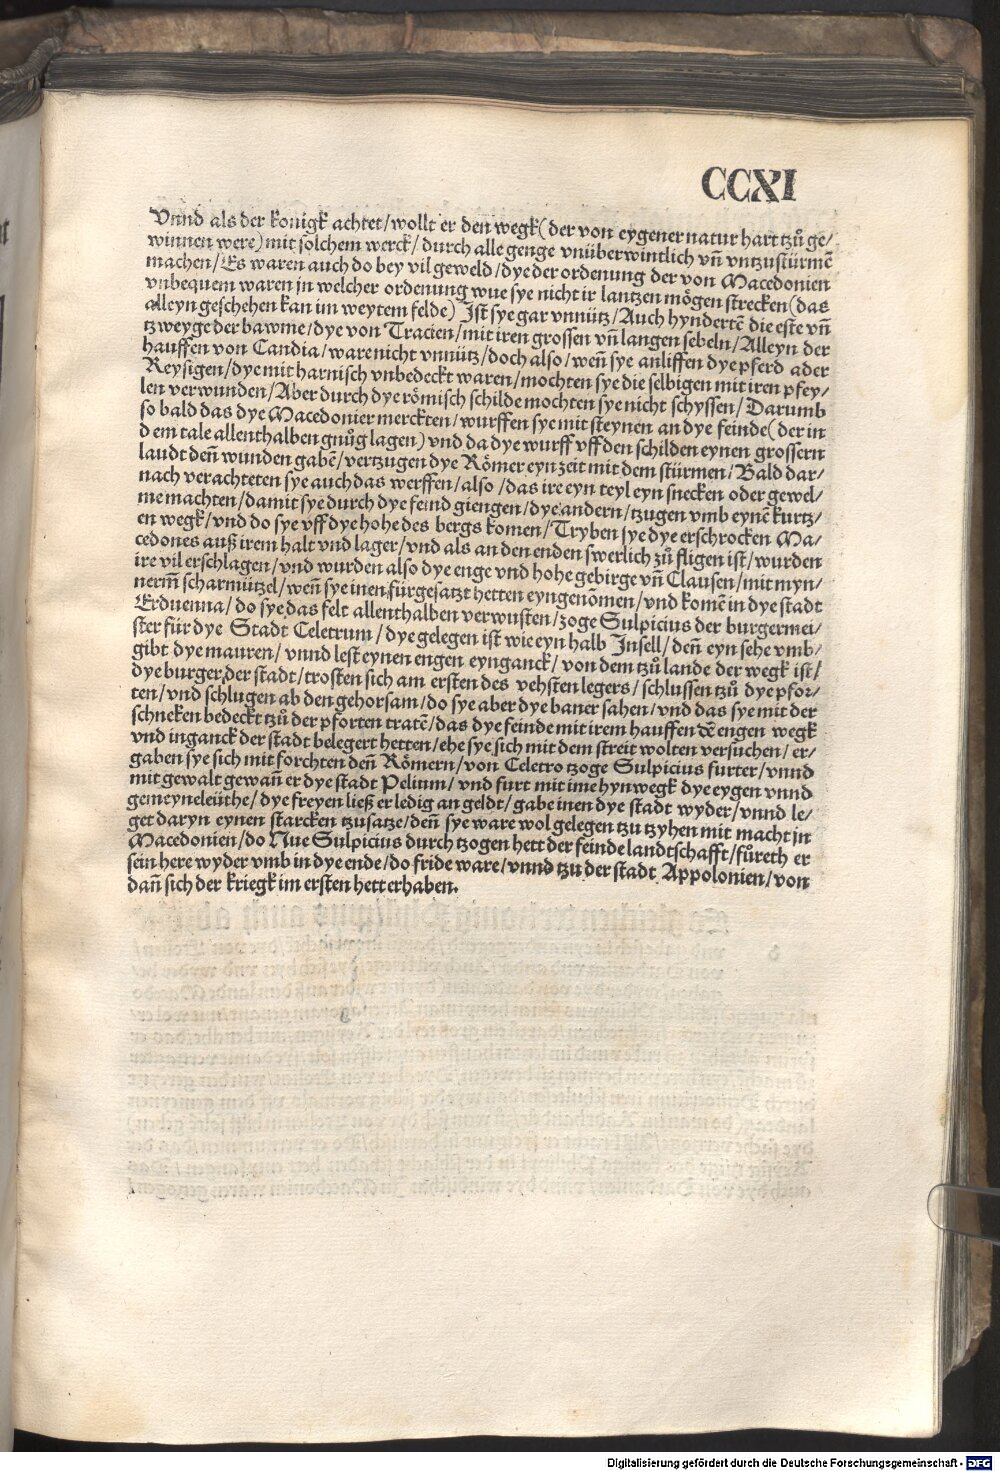 CCXI
Vnnd als der konigk achtet/wollt er den wegk(der von eygener natur hart tzů ge/
winnen were)mit solchem werck/durch alle genge vnüberwintlich vñ vntzustürmẽ
machen/Es waren auch do bey vil geweld/dye der ordenung der von Macedonien
vnbequem waren jn welcher ordenung wue sye nicht ir lantzen mögen strecken(das
alleyn geschehen kan im weytem felde)Jst sye gar vnnütz/Auch hyndertẽ die este vñ
tzweyge der bawme/dye von Tracien/mit iren grossen vñ langen sebeln/Alleyn der
hauffen von Candia/ware nicht vnnütz/doch also/weñ sye anliffen dye pferd ader
Reysigen/dye mit harnisch vnbedeckt waren/mochten sye die selbigen mit iren pfey/
len verwunden/Aber durch dye römisch schilde mochten sye nicht schyssen/Darumb
so bald das dye Macedonier merckten/wurffen sye mit steynen an dye feinde(der in
dem tale allenthalben gnůg lagen)vnd da dye wurff vff den schilden eynen grossern
laudt deñ wunden gabẽ/vertzugen dye Römer eyn zeit mit dem stürmen/Bald dar/
nach verachteten sye auch das werffen/also/das ire eyn teyl eyn snecken oder gewel/
me machten/damit sye durch dye feind giengen/dye andern/tzugen vmb eynẽ kurtz/
en wegk/vnd do sye vff dye hohe des bergs komen/Tryben sye dye erschrocken Ma/
cedones auß irem halt vnd lager/vnd als an den enden swerlich zů fligen ist/wurden
ire vil erschlagen/vnd wurden also dye enge vnd hohe gebirge vñ Clausen/mit myn/
nerm̃ scharmützel/weñ sye inen fürgesatzt hetten eyngenõmen/vnd komẽ in dye stadt
Erduenna/do sye das felt allenthalben verwusten/zoge Sulpicius der burgermei/
ster für dye Stadt Celetrum/dye gelegen ist wie eyn halb Jnsell/deñ eyn sehe vmb/
gibt dye mauren/vnnd lest eynen engen eynganck/von dem tzů lande der wegk ist/
dye burger der stadt/trosten sich am ersten des vehsten legers/schlussen tzů dye pfor/
ten/vnd schlugen ab den gehorsam/do sye aber dye baner sahen/vnd das sye mit der
schneken bedeckt tzů der pforten tratẽ/das dye feinde mit irem hauffen dẽ engen wegk
vnd inganck der stadt belegert hetten/ehe sye sich mit dem streit wolten versuchen/er/
gaben sye sich mit forchten deñ Römern/von Celetro tzoge Sulpicius furter/vnnd
mit gewalt gewañ er dye stadt Pelium/vnd furt mit ime hynwegk dye eygen vnnd
gemeyneleüthe/dye freyen ließ er ledig an geldt/gabe inen dye stadt wyder/vnnd le/
get daryn eynen starcken tzusatze/deñ sye ware wol gelegen tzu tzyhen mit macht jn
Macedonien/do Nue Sulpicius durch tzogen hett der feinde landtschafft/fůreth er
sein here wyder vmb in dye ende/do fride ware/vnnd tzu der stadt Appolonien/von
dañ sich der kriegk im ersten hett erhaben.
Digitalisierung gefördert durch die Deutsche Forschungsgemeinschaft - DFG